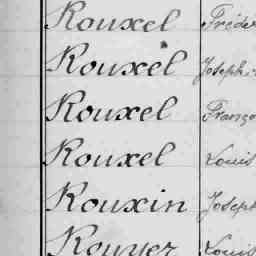 Rouxel Fréde
Rouxel Joseph
Rouxel Franço
Rouxel Louis
Rouxin Joseph
Rouyer Louis